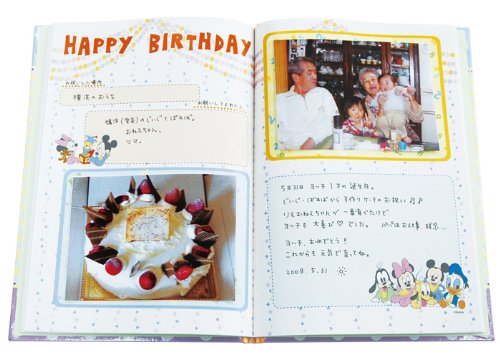 HAPPY BIRTHDAY
お祝いした場所
横浜のおうち
お祝いしてくれた人
横浜(登戸)のじぃじとばぁば。
おねえちゃん。
ママ。
5月31日 ヨッチ 1才の誕生日。
じぃじ・ばぁばから手作りケーキのお祝い♪♪
りえおねえちゃんが一番食べたけど
ヨッチも大喜び♡でした。 パパはお仕事、残念…
ヨッチ、おめでとう!!
これからも元気で育ってね。
2008.5.31